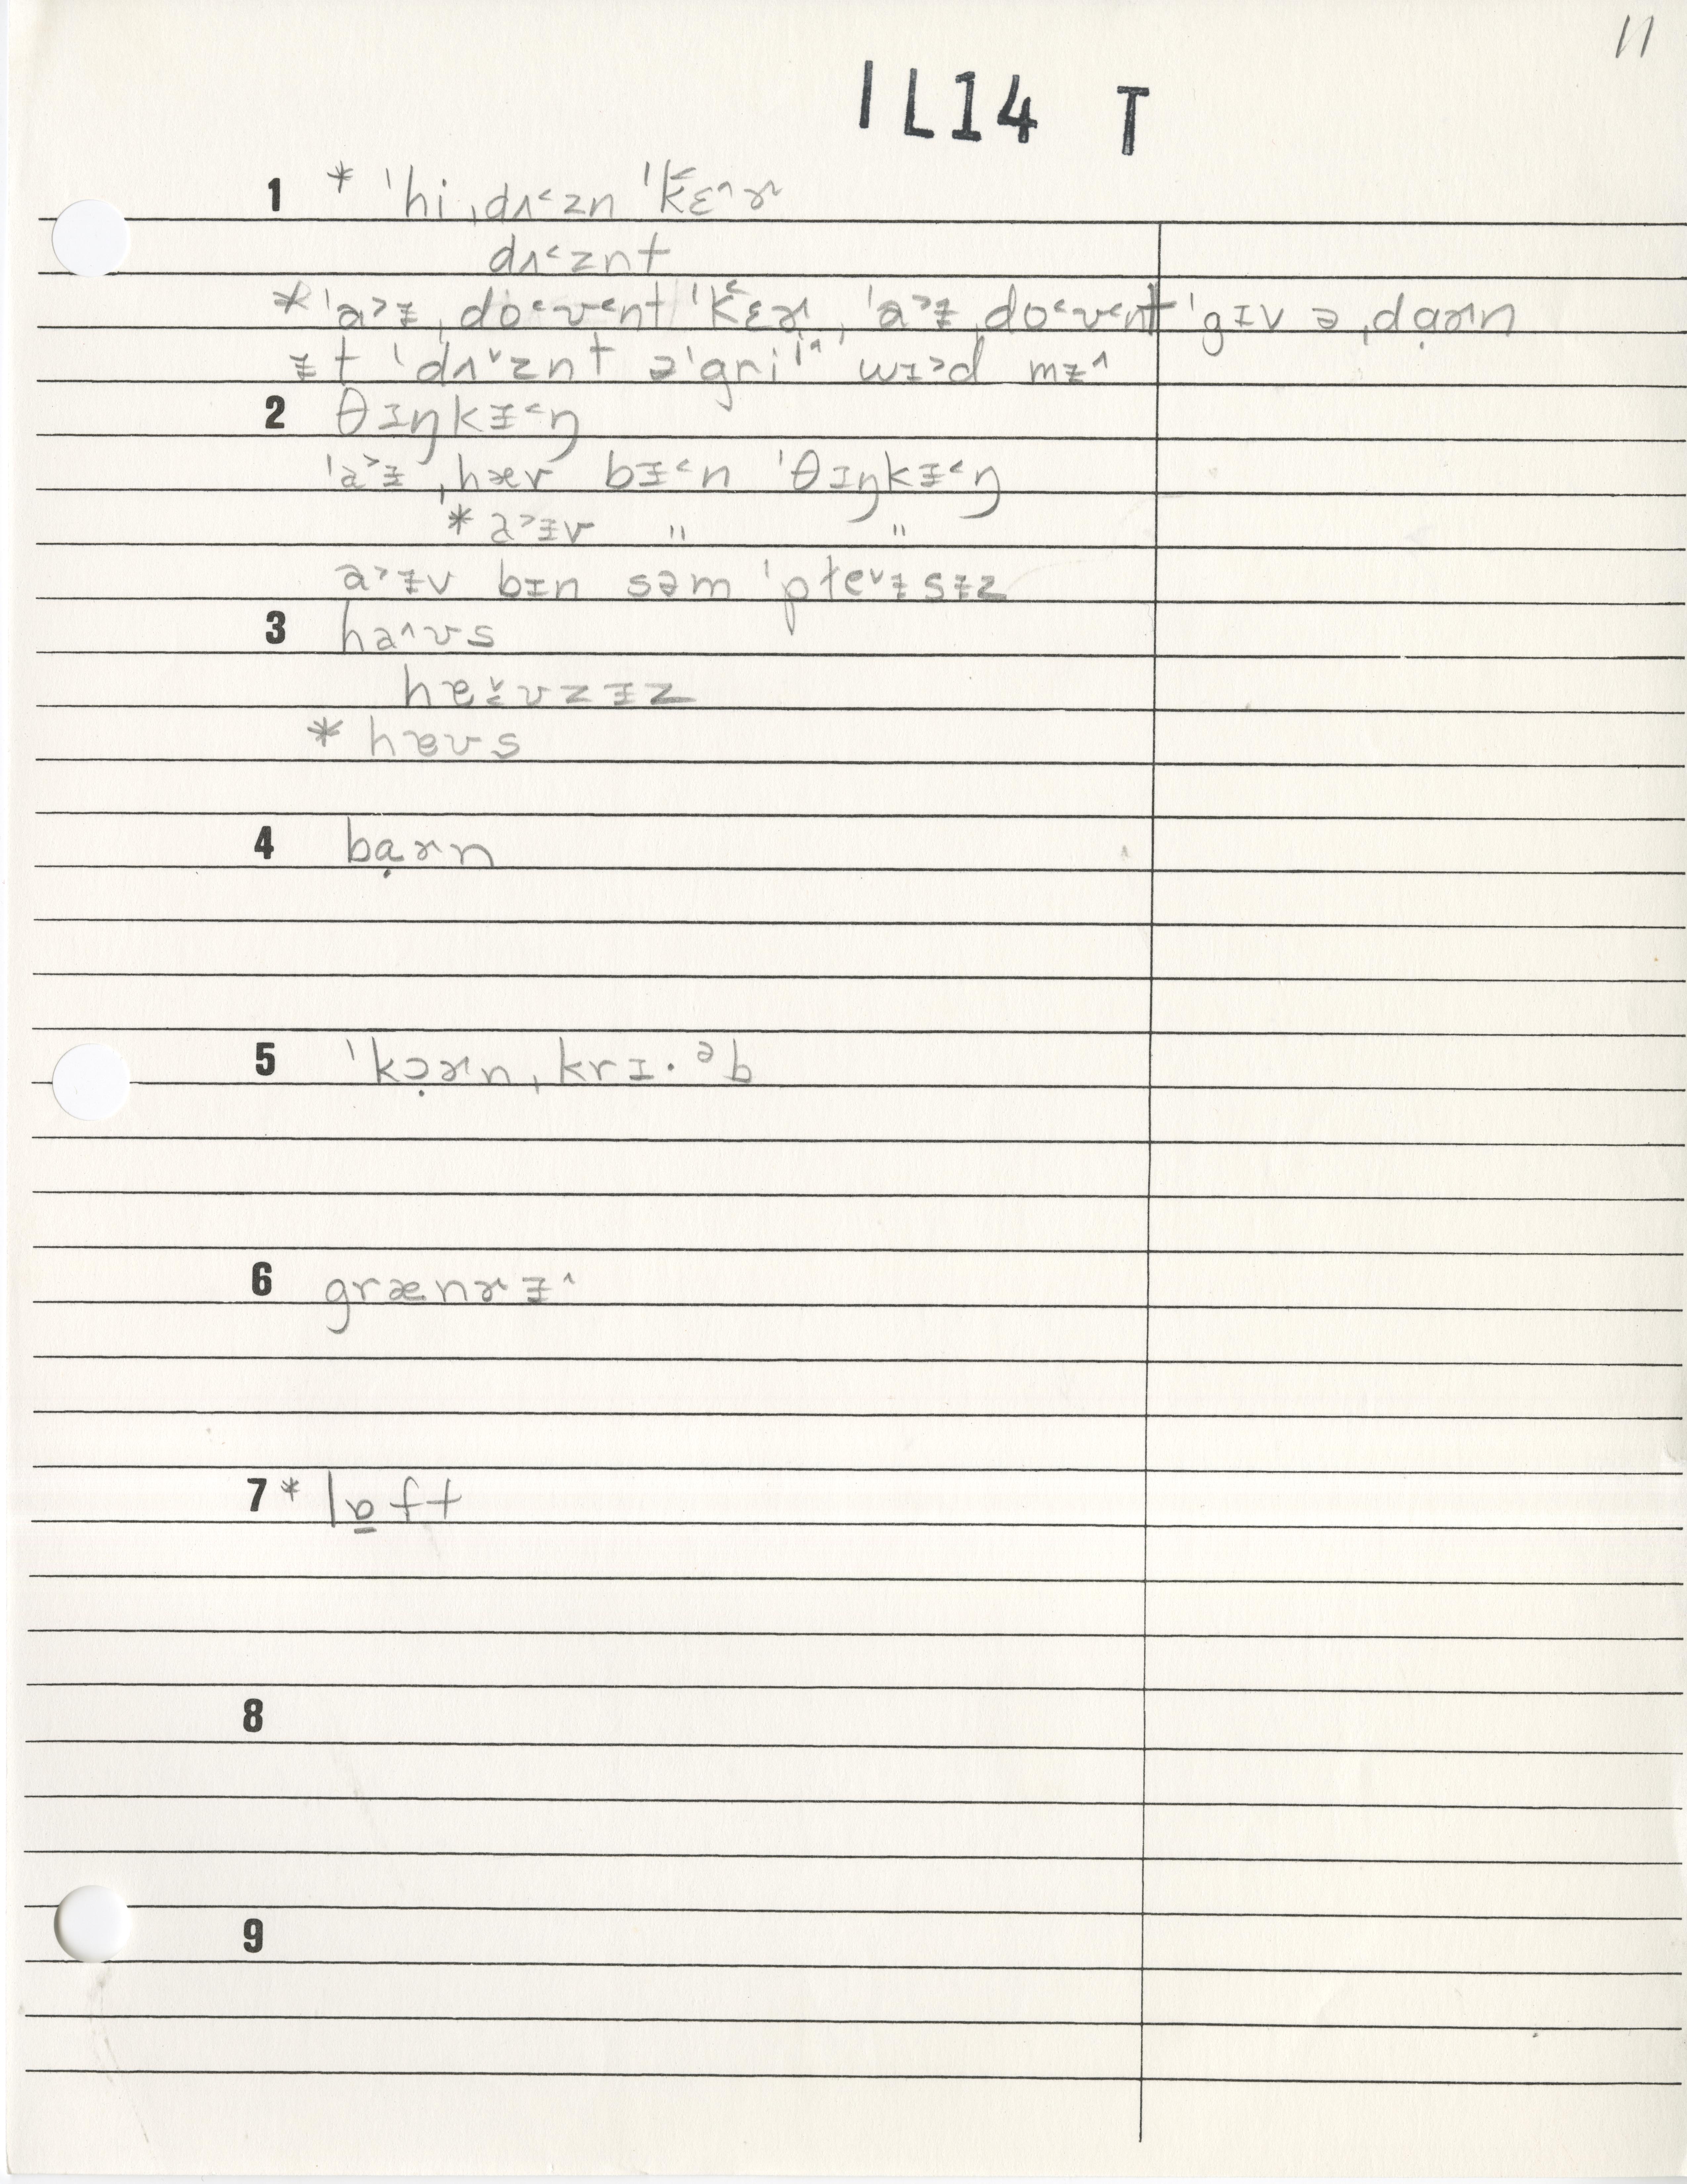 11
IL14 T
1 * ˈhi ˌdʌ˂zn ˈk˂ɛ˄ɚ
dʌ˂znt
* ˈa˃ɨ ˌdo˂ʊ˂nt ˈk˂ɛɚ, ˈa˃ɨ ˌdo˂ʊ˂nt ˈgɪv ə ˌdɑ̣ɚn
ɨt ˈdʌ˅znt əˈgriˈˈ wɪ˃d mɨ˄
2 θɪŋkɨ˂ŋ
ˈa˃ɨ ˌhæv bɨ˂n ˈθɪŋkɨ˂ŋ
* a˃ɨv " "
a˃ɨv bɪn səm ˈpɫe˅ɨsɨz
3 ha˄ʊs
hæ˅˂ʊzɨz
* hæʊs
4 bɑ̣ɚn
5 ˈkɔ̣ɚnˌkrɪ·ᵊb
6 grænɚɨ˄
7 * lɒ̱ft
8
9